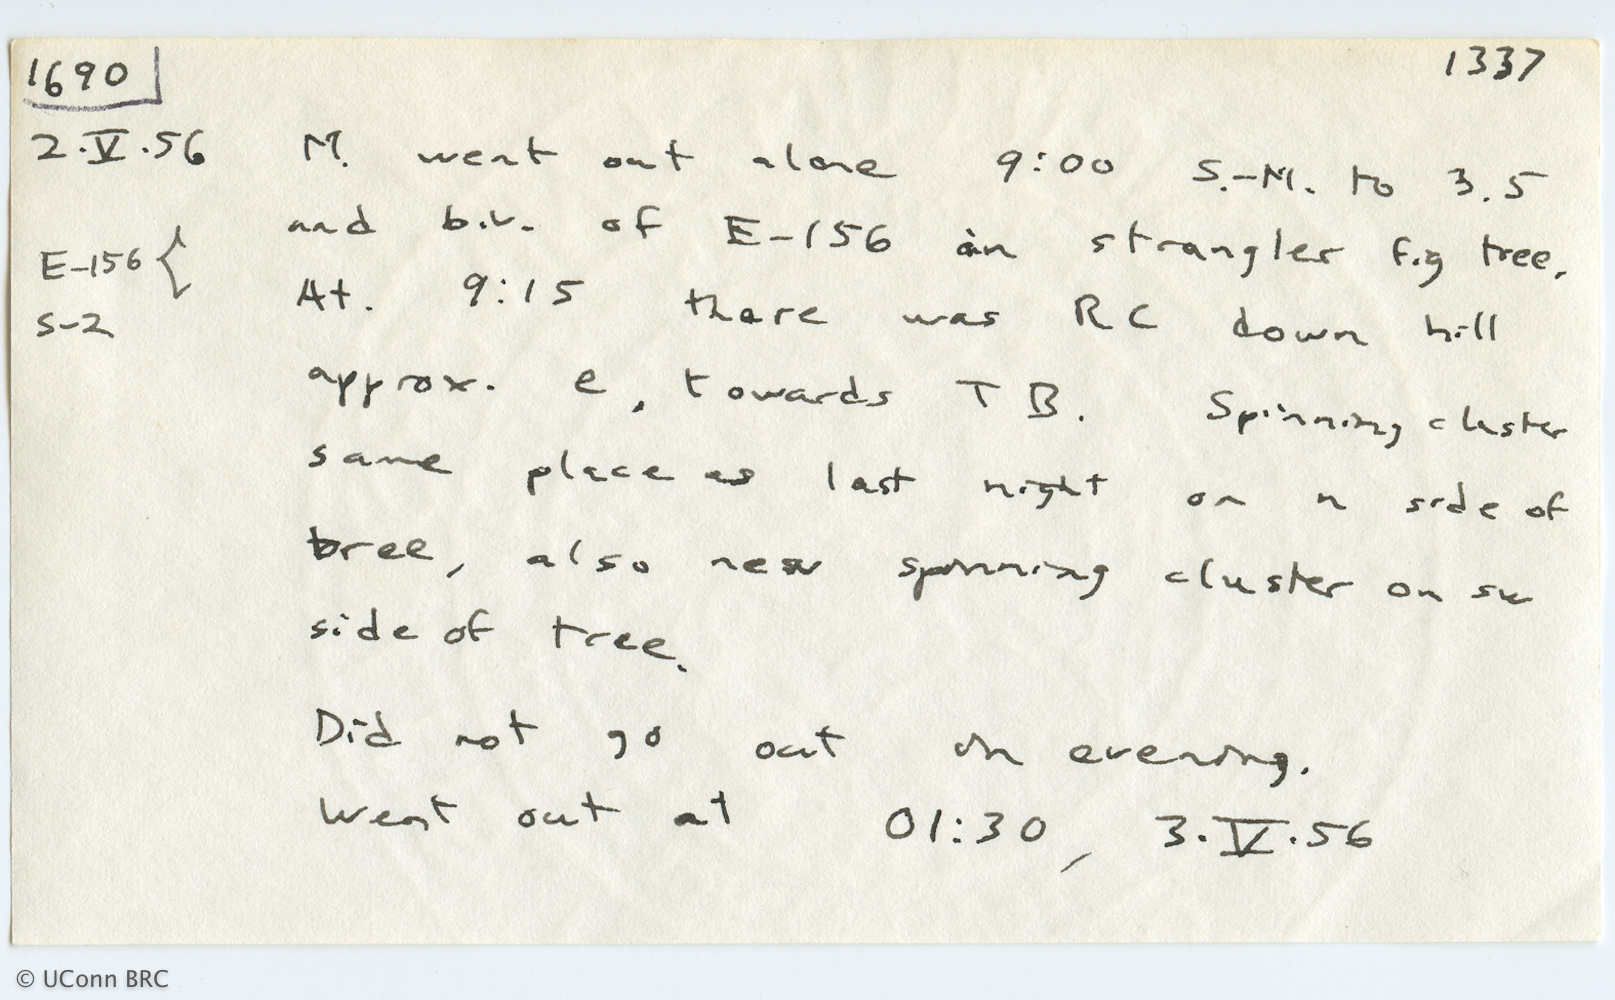 1690
1337
2.V.56 M. went out alone 9:00 S.-M. to 3.5
and b.v. of E-156 in strangler fig tree.
E-156 {
At. 9:15 there was RC down hill
S-2
approx. e, towards TB. Spinning cluster
same place as last night on n side of
tree, also new spinning cluster on sw
side of tree.
Did not go out in evening.
Went out at 01:30, 3.V.56
© UConn BRC